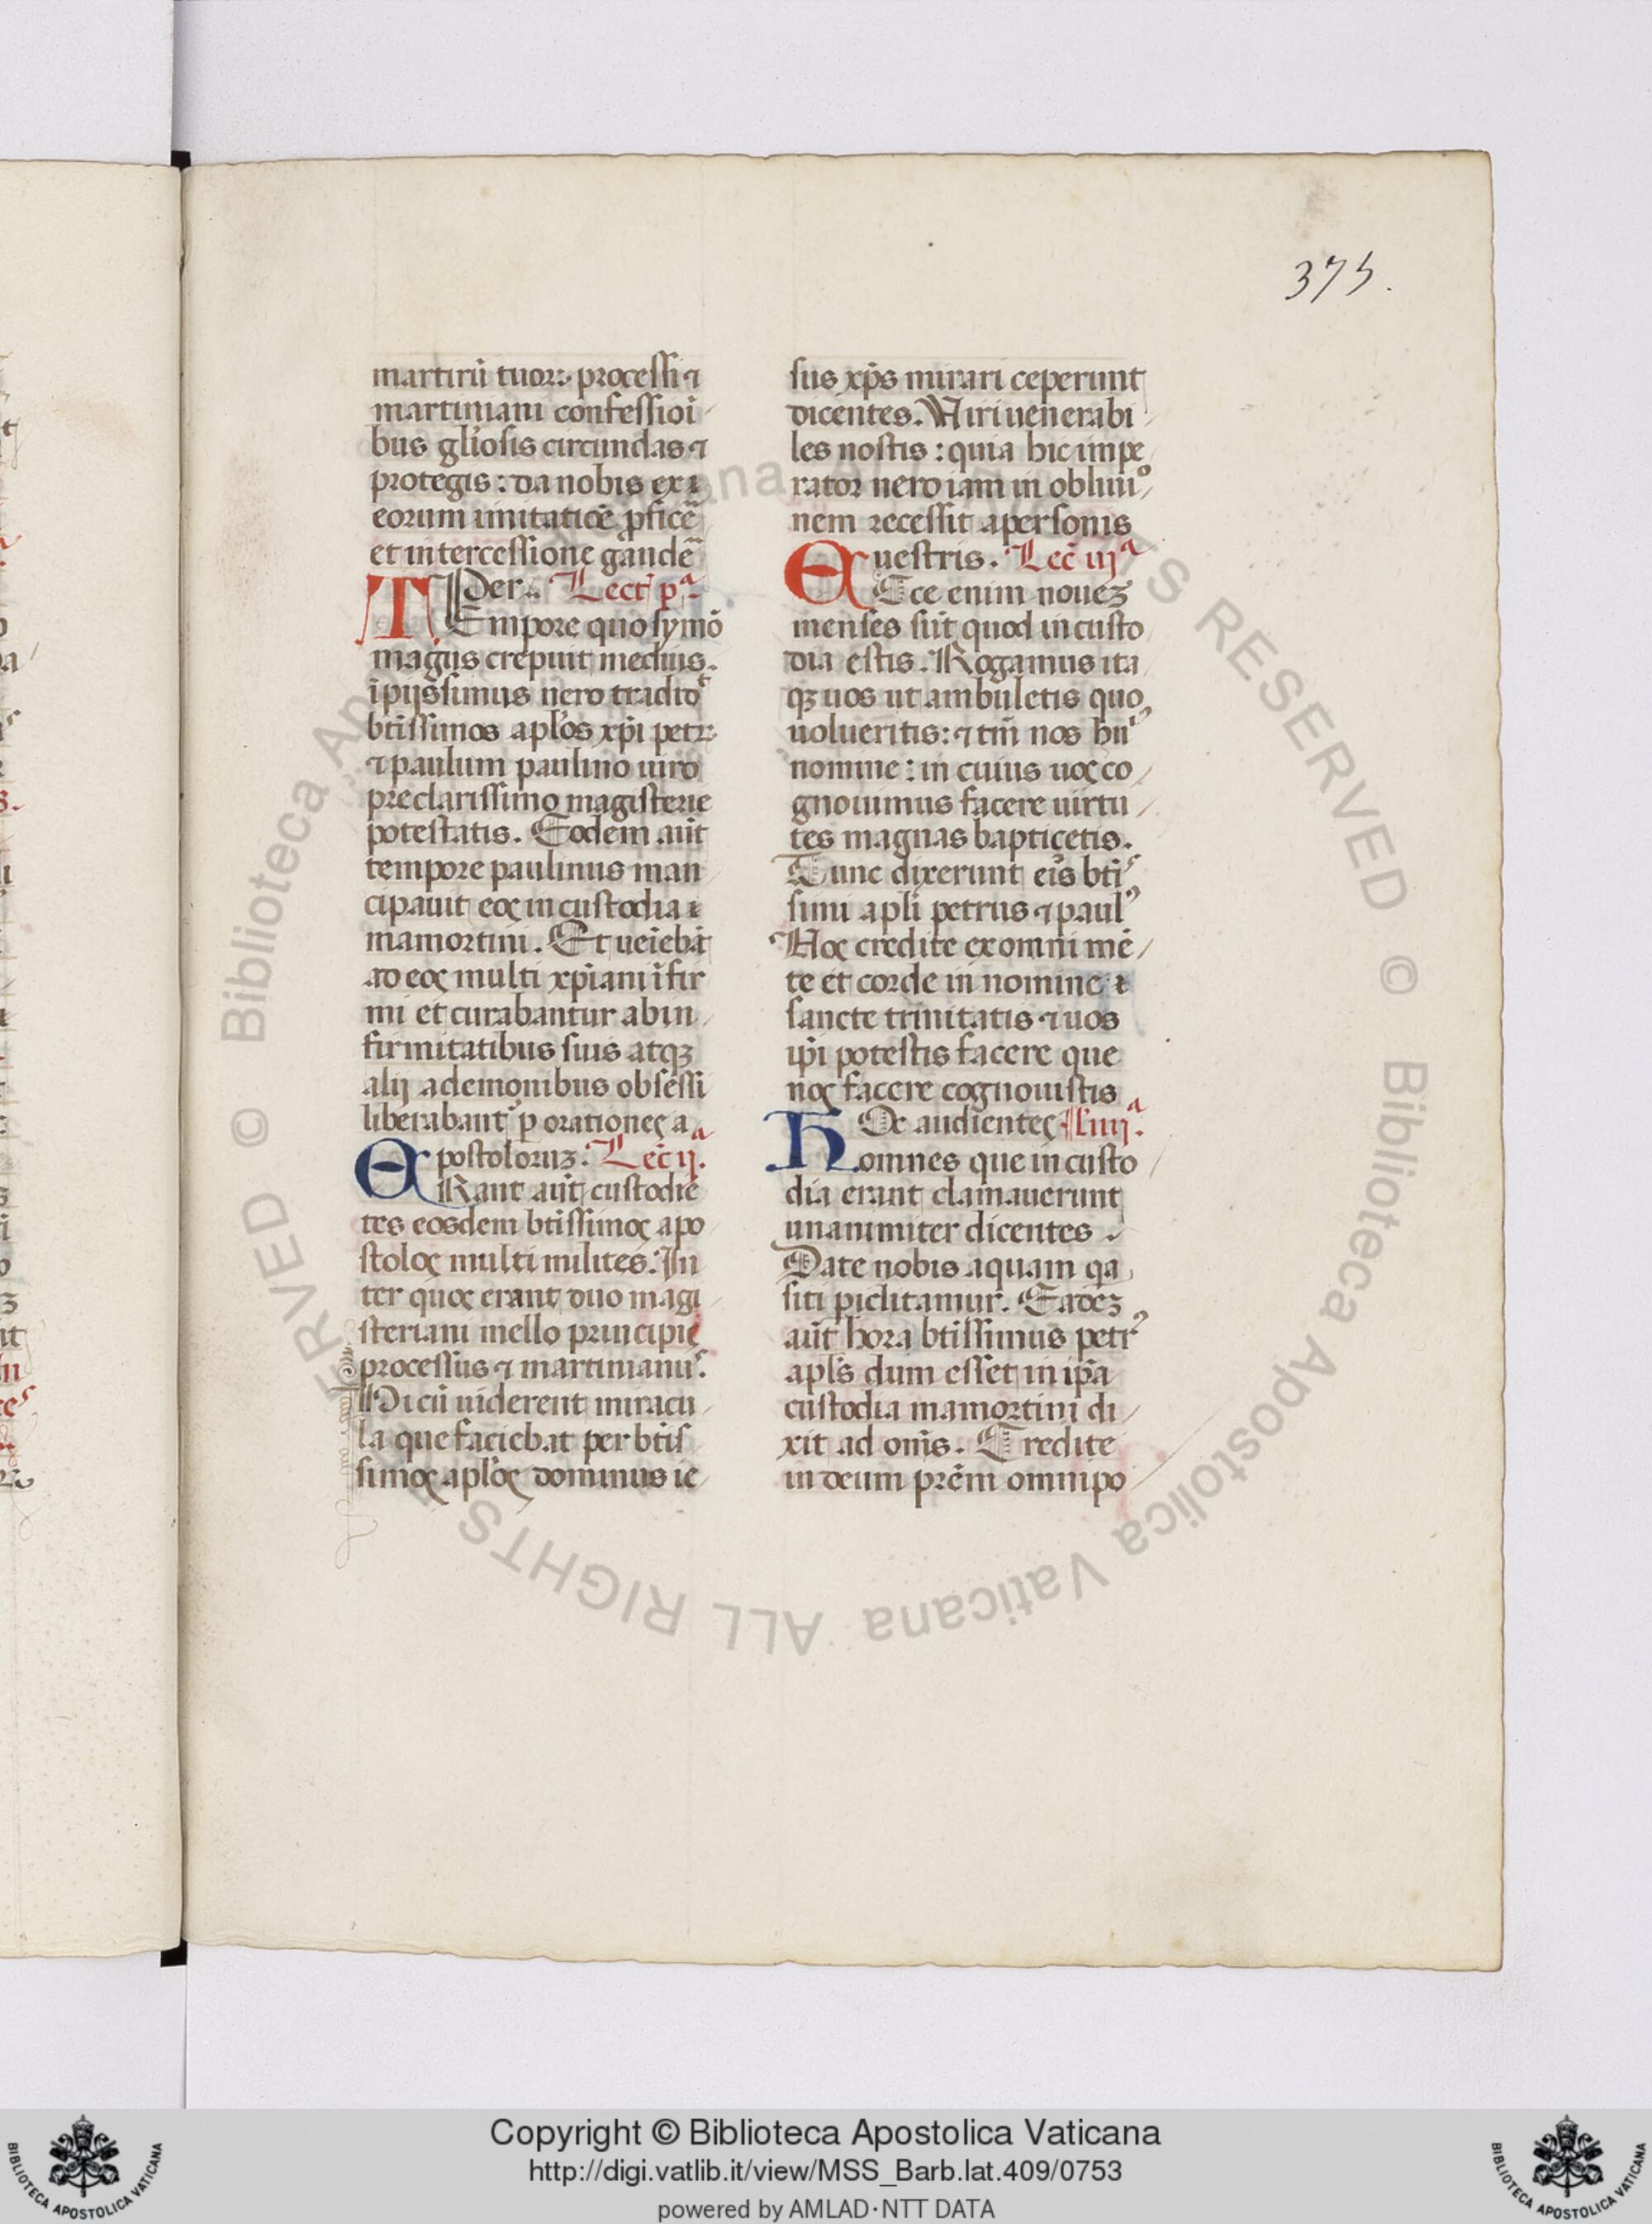 375.
martirū tuoꝝ processi ⁊
martiniani confessioi
bus gl'iosis circundas ⁊
protegis : da nobis ex
eorum imitatiōe ꝓficē
et intercessione gaudē
Per. Lect' pᵃ
Empore quo symō
magus crepuit medius.
īpijssimus nero tradit
btīssimos apl'os xp̄i petꝝ
⁊ paulum paulino uiro
preclarissimo magisterie
potestatis. Eodem aūt
tempore paulinus man
cipauit eos in custodia
mamortini. Et ueīebāt
ad eos multi xp̄iani īfir
mi et curabantur ab in
firmitatibus suis atqꝫ
alij a demonibus obsessi
liberabant' ꝑ orationes a
postoloruꝫ. Lec̄ ijᵃ.
ERant aūt custodiē
tes eosdem btīssimos apo
stolos multi milites. In
ter quos erant duo magi
steriani mello principis
processus ⁊ martinianus.
Hi cū uiderent miracu
la que faciebat per btīs
simos apl'os dominus ie
sus xp̄s mirari ceperunt
dicentes. Viri uenerabi
les nostis : quia hic impe
rator nero iam in obliuio
nem recessit a personis
uestris. Lec̄ iijᵃ
Ecce enim noueꝫ
menses sūt quod in custo
dia estis. Rogamus ita
qꝫ uos ut ambuletis quo
uolueritis : ⁊ tm̄ nos hui'
nomine : in cuius uos co
gnouimus facere uirtu
tes magnas baptiçetis.
Tunc dixerunt eis btīs
simi apl'i petrus ⁊ paulꝰ
Hos credite ex omni mē
te et corde in nomine
sancte trinitatis ⁊ uos
ip̄i potestis facere que
nos facere cognouistis
HOc audientes L' iiijᵃ.
omnes que in custo
dia erant clamauerunt
unanimiter dicentes.
Date nobis aquam qa
siti ꝑiclitamur. Eadeꝫ
aūt hora btīssimus petrꝰ
apl's dum esset in ip̄a
custodia mamortini di
xit ad om̄s. Credite
in deum prēm omnipo
© Biblioteca Apostolica Vaticana ALL RIGHTS RESERVED
Copyright © Biblioteca Apostolica Vaticana
http://digi.vatlib.it/view/MSS_Barb.lat.409/0753
powered by AMLAD·NTT DATA
BIBLIOTECA APOSTOLICA VATICANA
BIBLIOTECA APOSTOLICA VATICANA